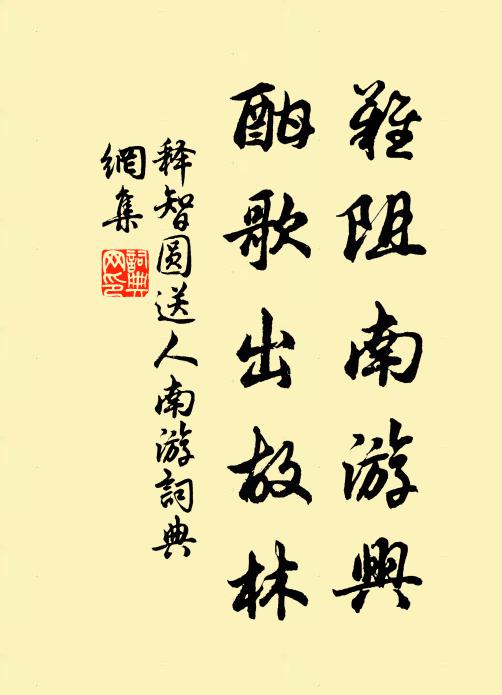 難阻南游興
酣歌出故林
释智圆送人南游詞典
網集
詞典
网印